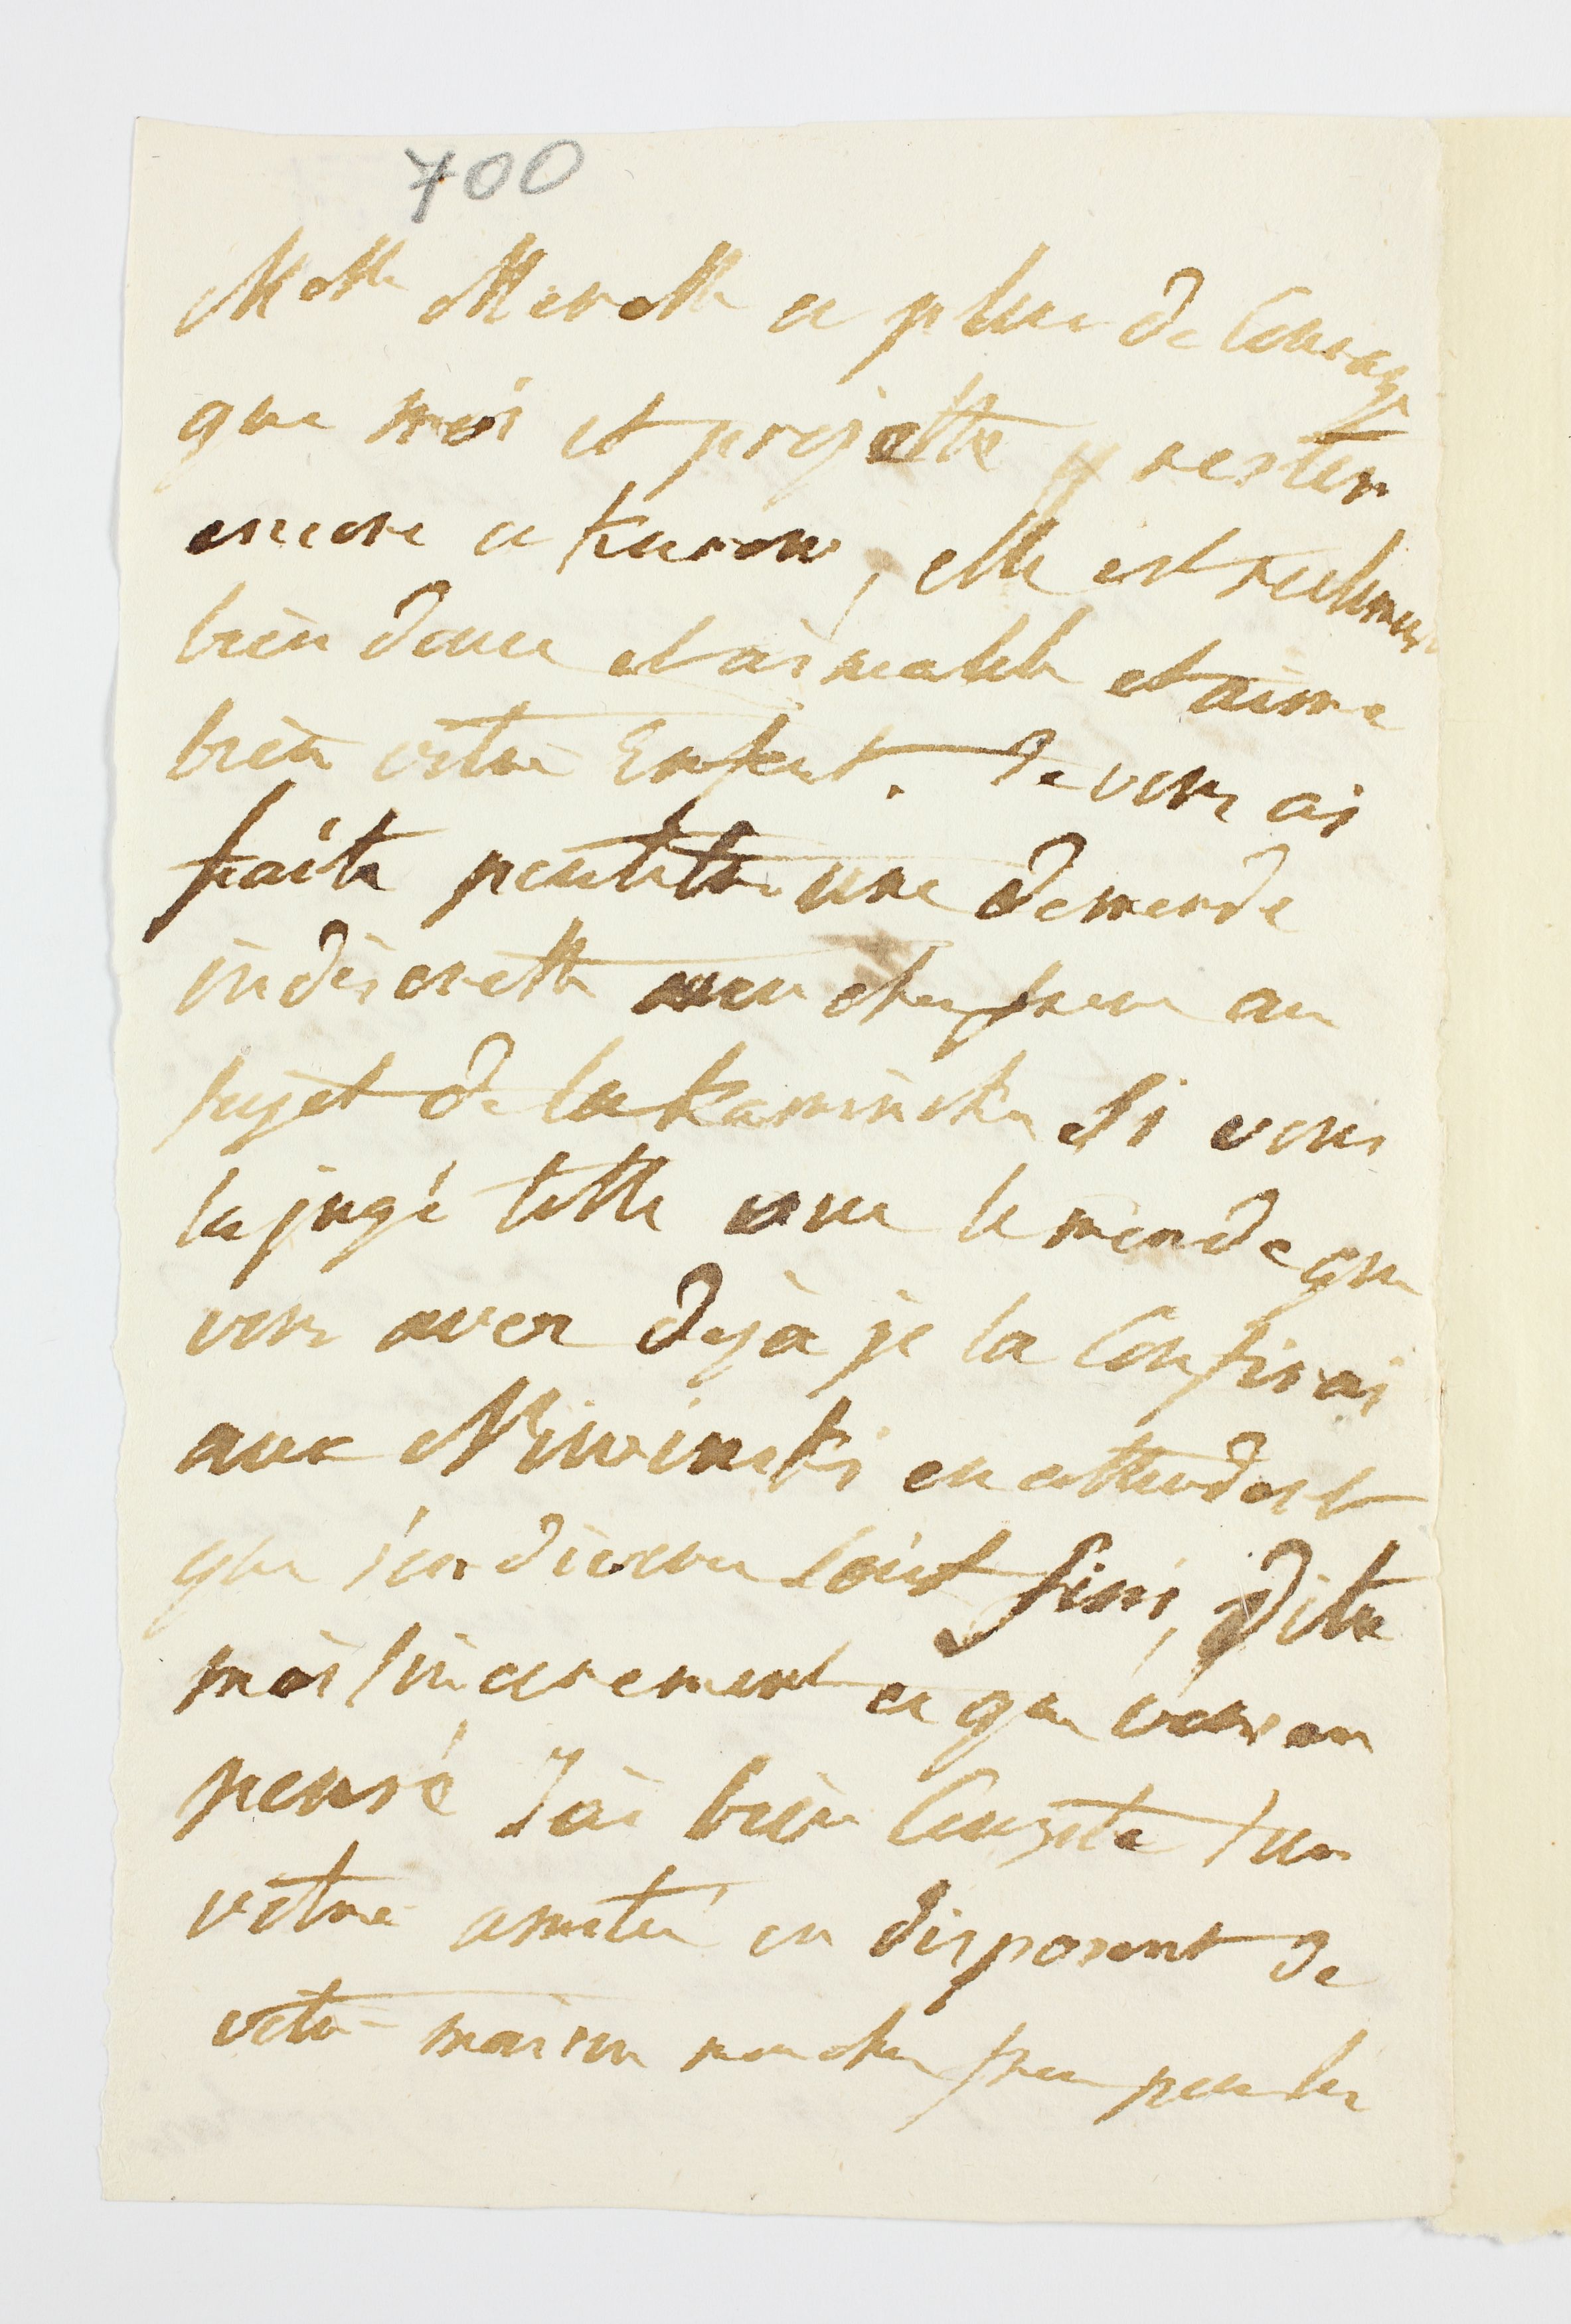 700
Melle Merelle a plus de Courage
que moi et projette y rester
encore a Kurow, elle est reelement
bien douce et aimable et aime
bien votre Enfent. Je vous ai
faite peutetre une demende
indiscrette mon cher frere au
sujet de la Kaminska Si vous
la jugé telle vue le monde que
vous avez deja je la Confirai
aux Niwinski en attendent
que soit fini, Dite
moi sincerement ce que vous en
pensé J'ai bien Compté sur
votre amitié en disposent de
votre maison mon cher frere pour les